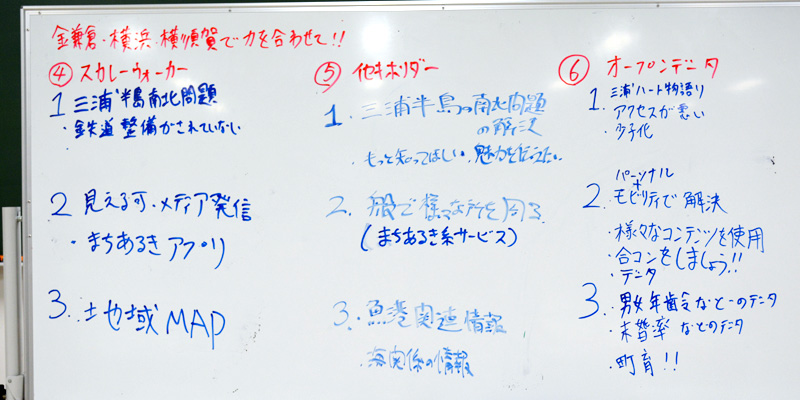 金鎌倉・横浜・横須賀で力を合わせて!!
④ スカレーウォーカー
1 三浦半島南北問題
・鉄道整備がされていない
2 見える可・メディア発信
・まちあるきアプリ
3. 地域MAP
⑤ 他キホリダー
1. 三浦半島の南北問題
の解決
・もっと知ってほしい、魅力を伝えたい
2. 船で様々な所を周る
(まちあるき系サービス)
3. 魚港関連情報
・海関係の情報
⑥ オープンデータ
1. 三浦ハート物語り
アクセスが悪い
・少子化
パーソナル
+
2. モビリティで解決
・様々なコンテンツを使用
・合コンをしましょう!!
・データ
3. ・男女年齢などーのデータ
・未婚率などのデータ
・町育!!